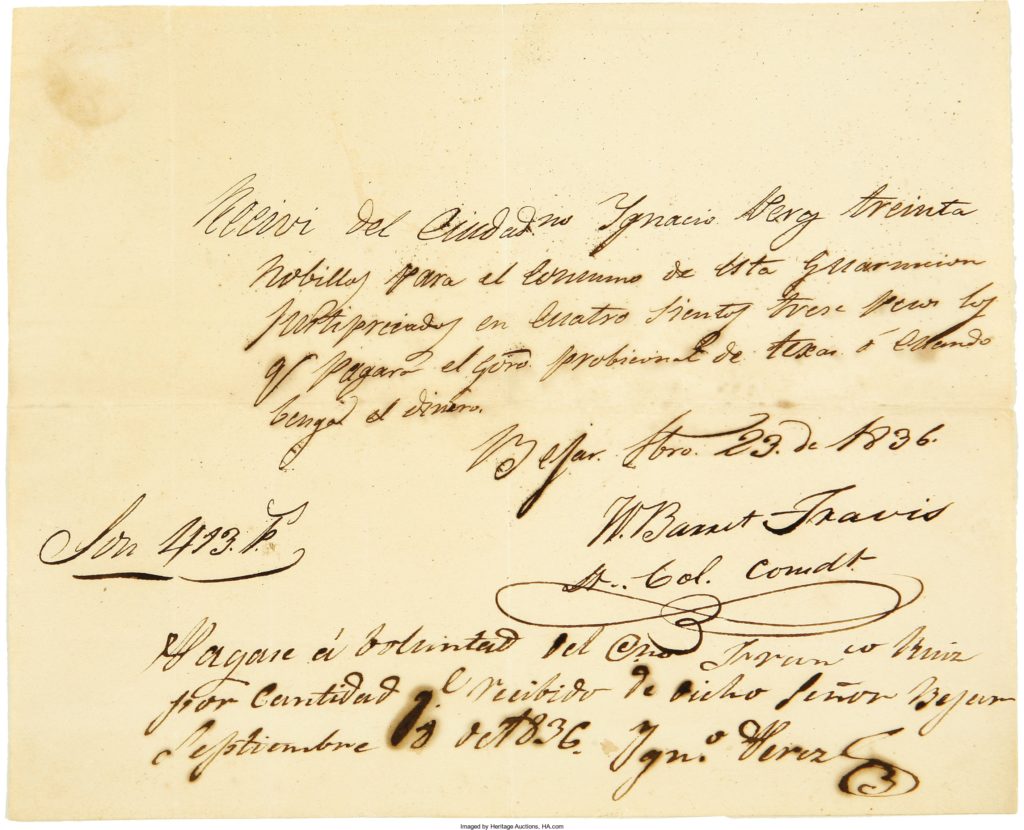 Recivi del Ciudad.no Ygnacio Perez treinta
Nobillos para el Consumo de esta Guarnicion
Justipreciados en Cuatro Sientos trese pesos los
q.e pagara el Gŏno probicional de texas ó Cuando
tenga el dinero.
Bejar. fbro. 23. de 1836.
W. Barret Travis
Lt. Col. Comdt.
Son 413. Ps
Pagase á boluntad del C.no Fran.co Ruiz
por Cantidad q.e recibido de dicho Señor Bejar
Septiembre de 1836. Ygn.o Perez
Imaged by Heritage Auctions, HA.com